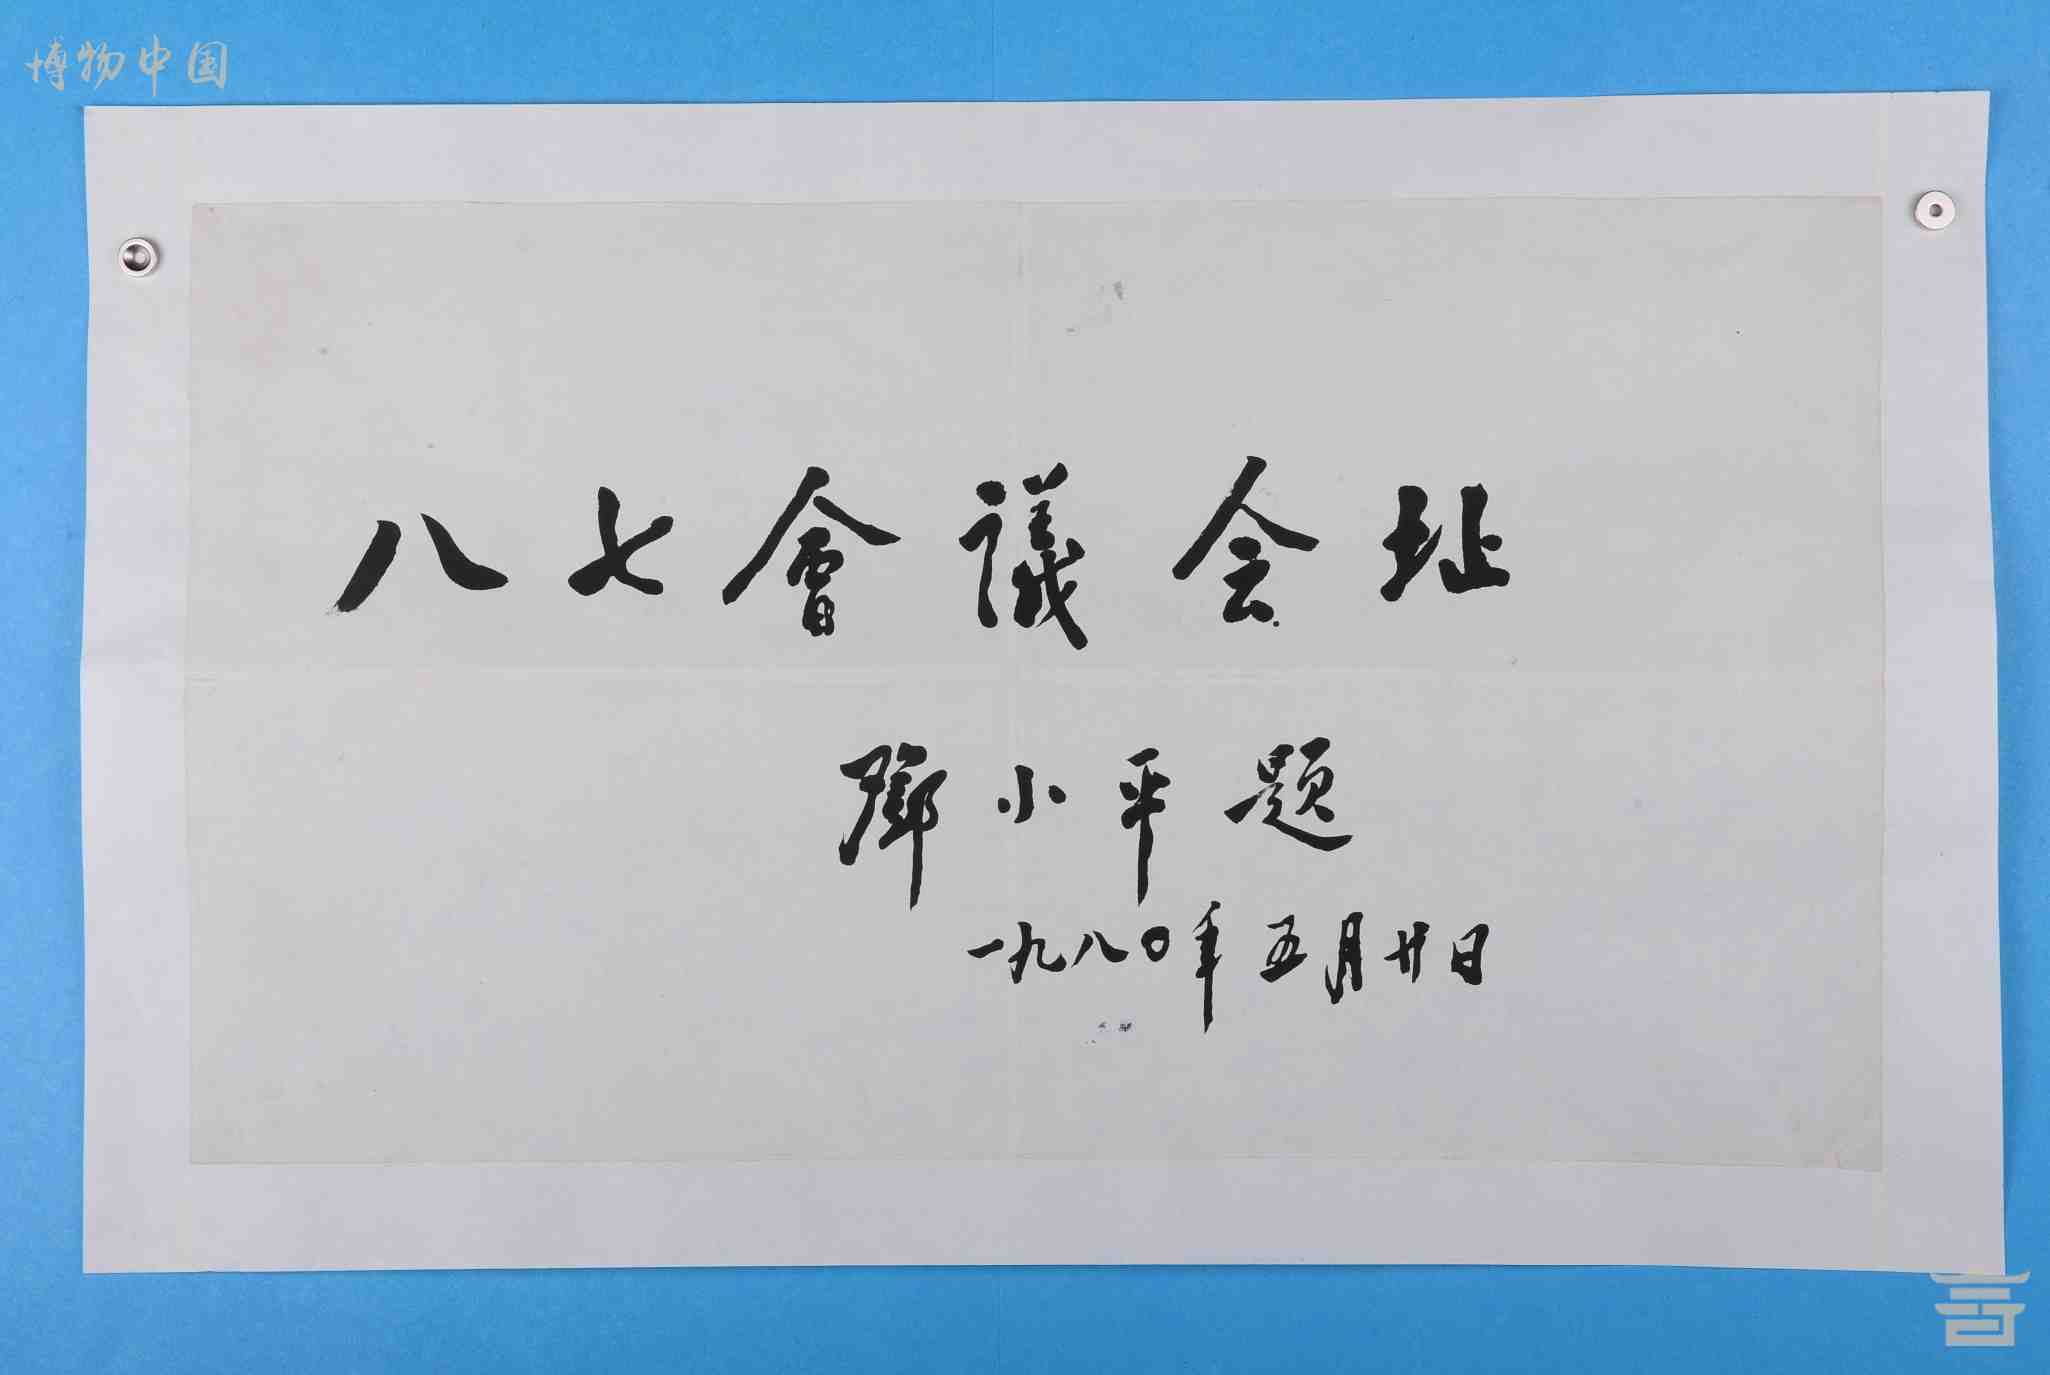 博物中国
八七會議会址
鄧小平题
一九八〇年五月廿日